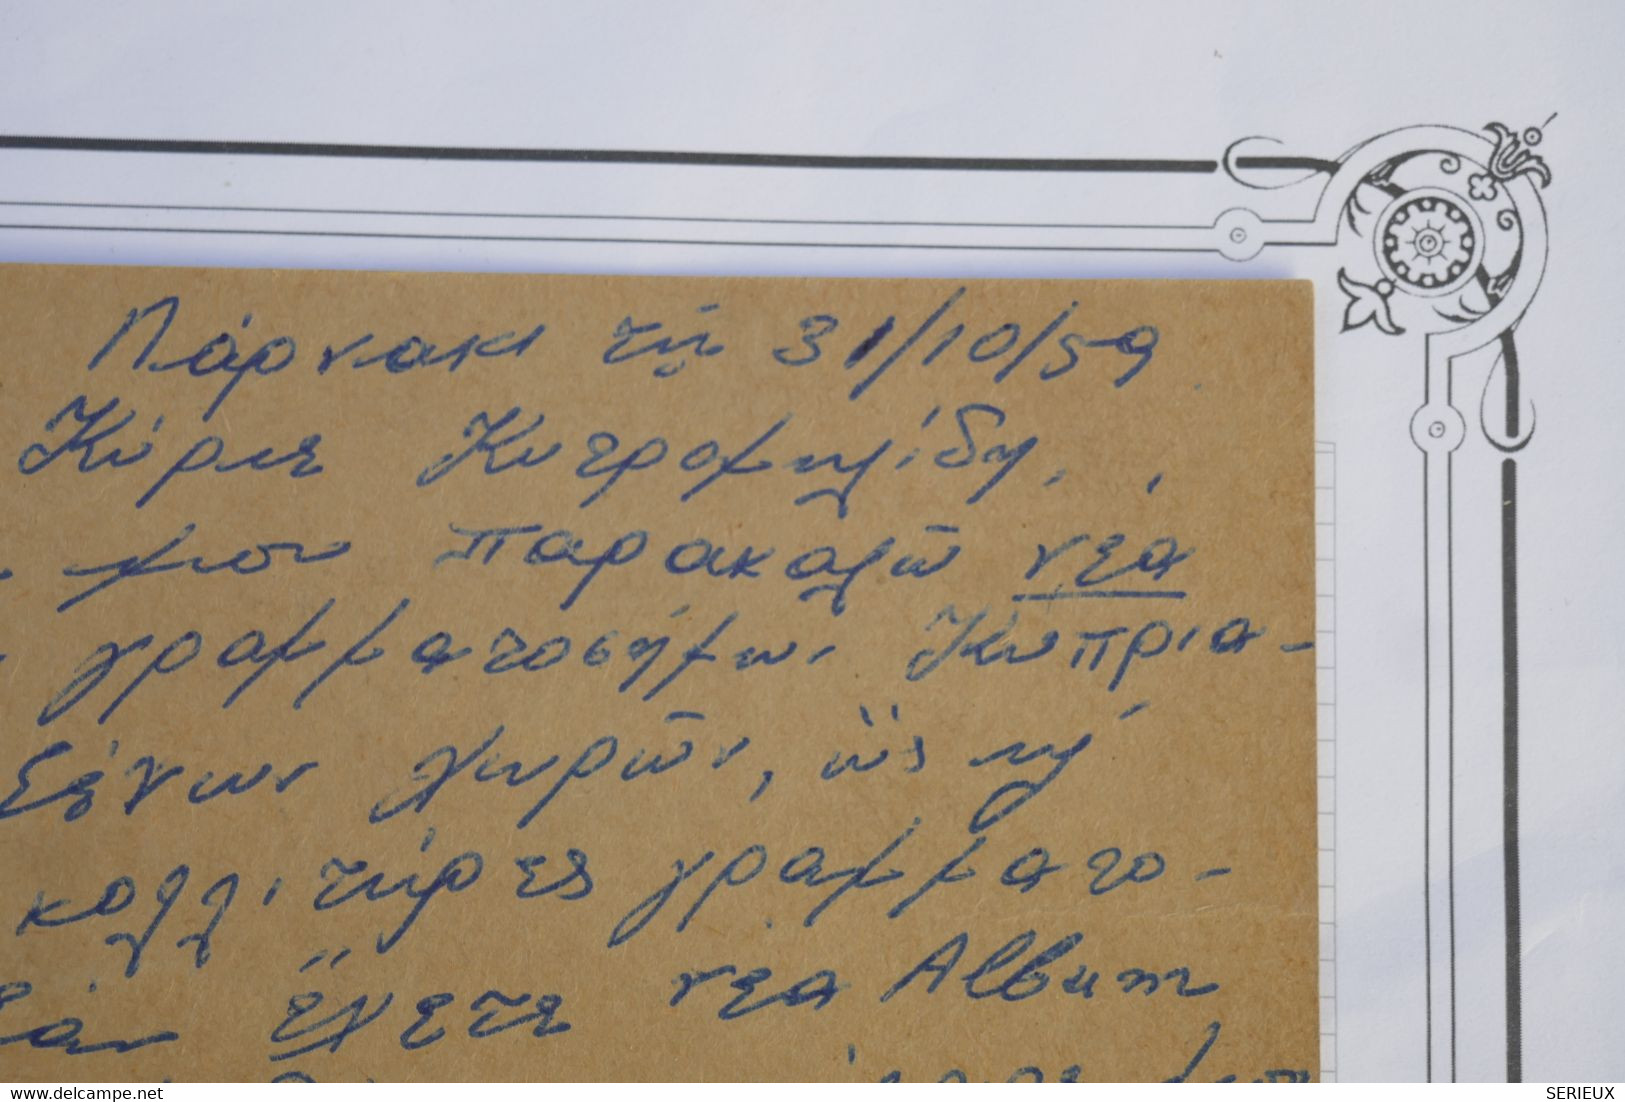 Λάρνακι τῇ 31/10/59
Κύριε Κυτρομηλίδη,
μου παρακαλῶ νέα
γραμματοσήμων Κυπρια-
ξένων χωρῶν, ὡς καὶ
γραμματο-
Ἐὰν ἔχετε νέα Album
delcampe.net
SERIEUX